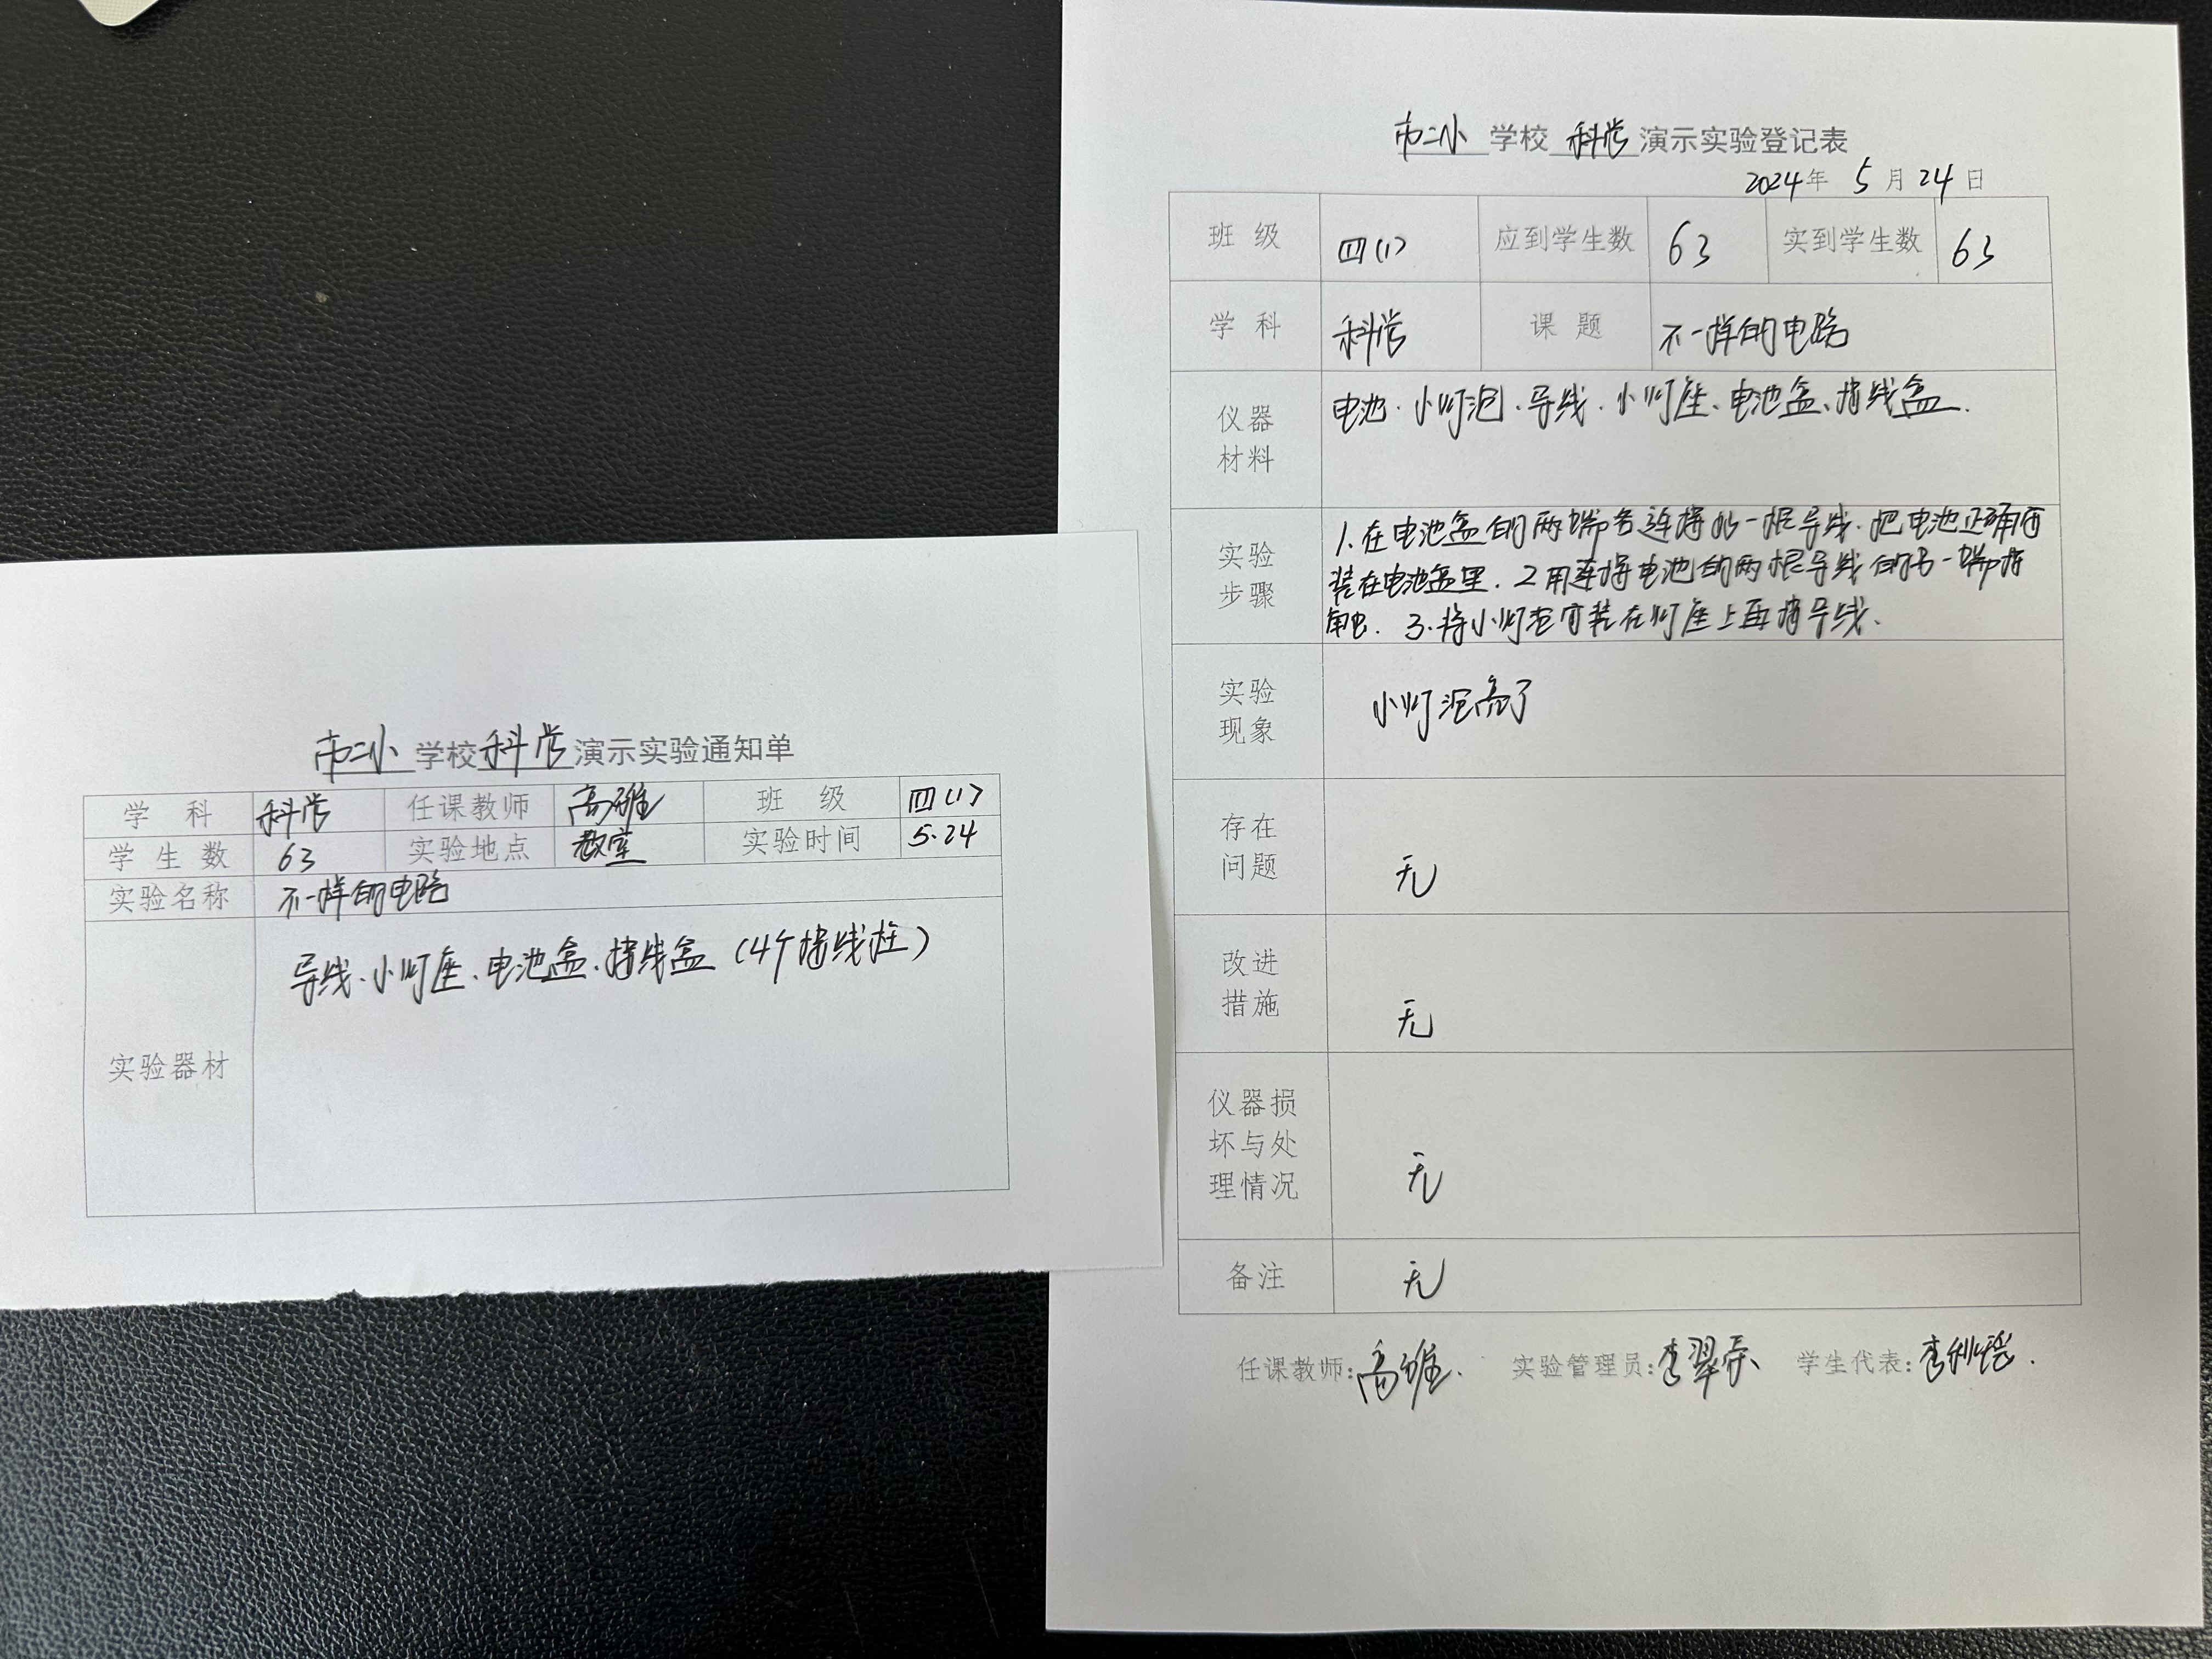 市二小 学校 科学 演示实验通知单
学 科 科学 任课教师 高雅 班 级 四(1)
学 生 数 63 实验地点 教室 实验时间 5.24
实验名称 不一样的电路
实验器材 导线、小灯座、电池盒、接线盒(4个接线柱)
市二小 学校 科学 演示实验登记表
2024年 5 月 24 日
班 级 四(1) 应到学生数 63 实到学生数 63
学 科 科学 课 题 不一样的电路
仪器材料 电池、小灯泡、导线、小灯座、电池盒、接线盒.
实验步骤 1.在电池盒的两端各连接好一根导线.把电池正确
装在电池盒里. 2用连接电池的两根导线的另一端接
3.将小灯泡安装在灯座上再接导线.
实验现象 小灯泡亮了
存在问题 无
改进措施 无
仪器损坏与处理情况 无
备注 无
任课教师:高雅. 实验管理员:李翠 学生代表:李